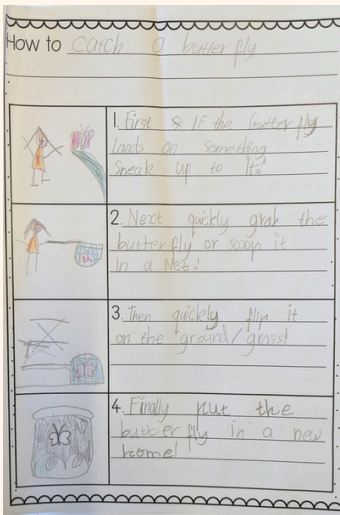 How to catch a butterfly
1. First & IF the butterfly
lands on something
Sneak up to It!
2. Next quickly grab the
butterfly or scoop it
In a Net!
3. Then quickely flip it
on the ground/grass!
4. Finally put the
butterfly in a new
home!